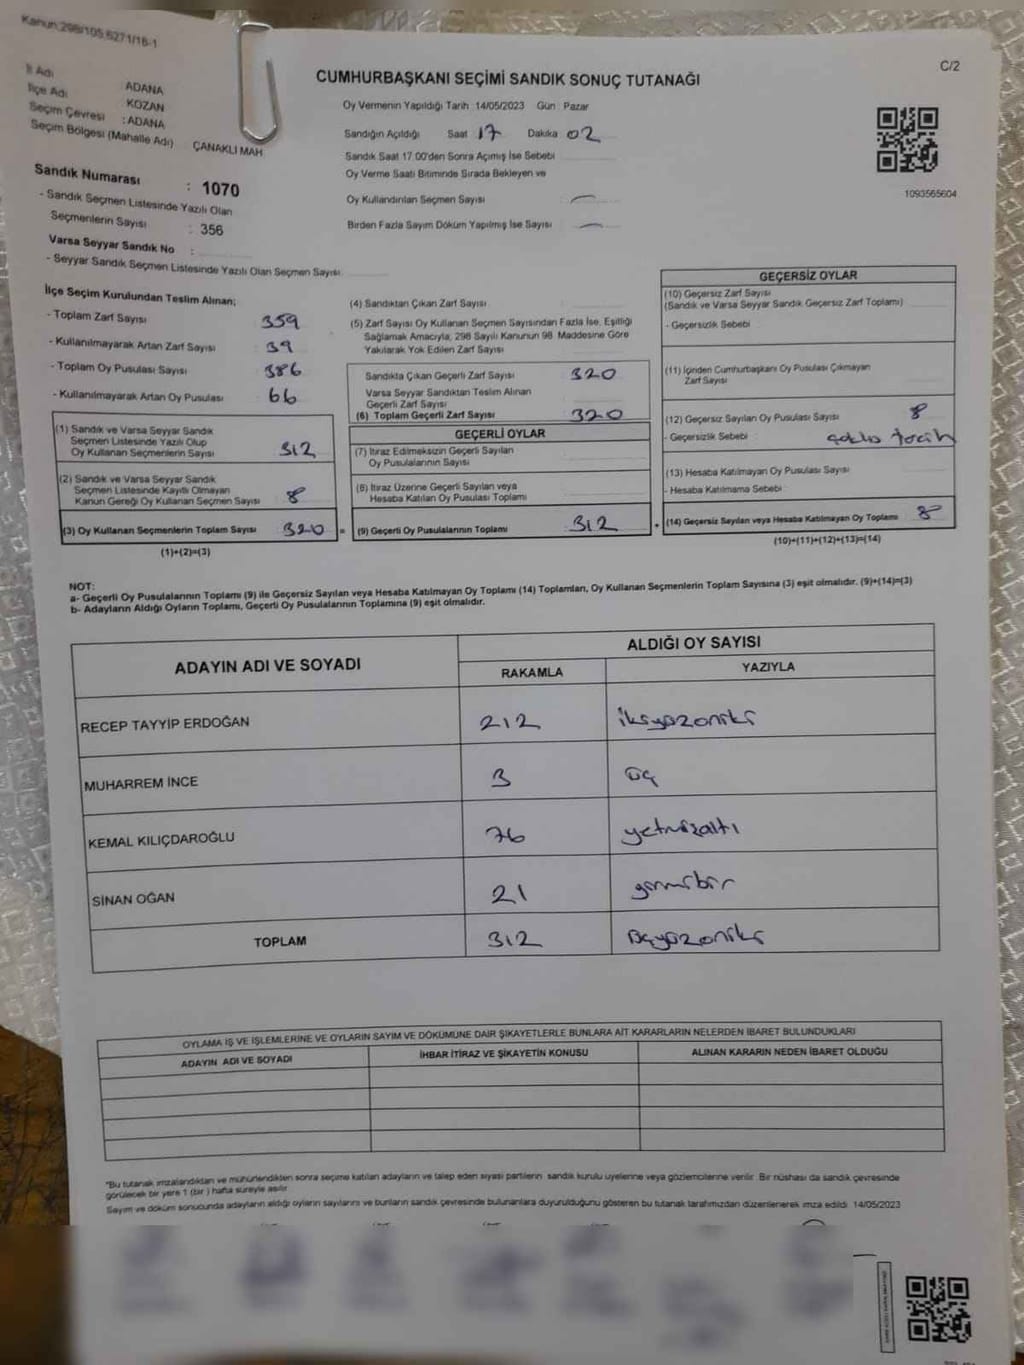 Kanun:298/105,6271/16-1
C/2
İl Adı
ADANA
İlçe Adı
KOZAN
Seçim Çevresi : ADANA
Seçim Bölgesi (Mahalle Adı) ÇANAKLI MAH.
CUMHURBAŞKANI SEÇİMİ SANDIK SONUÇ TUTANAĞI
Oy Vermenin Yapıldığı Tarih :14/05/2023 Gün : Pazar
Sandığın Açıldığı Saat 17 Dakika 02
Sandık Saat 17.00'den Sonra Açımış İse Sebebi
Oy Verme Saati Bitiminde Sırada Bekleyen ve
Oy Kullandırılan Seçmen Sayısı
Birden Fazla Sayım Döküm Yapılmış İse Sayısı
1093565604
Sandık Numarası : 1070
- Sandık Seçmen Listesinde Yazılı Olan
Seçmenlerin Sayısı : 356
Varsa Seyyar Sandık No :
- Seyyar Sandık Seçmen Listesinde Yazılı Olan Seçmen Sayısı
İlçe Seçim Kurulundan Teslim Alınan;
- Toplam Zarf Sayısı 359
- Kullanılmayarak Artan Zarf Sayısı 39
- Toplam Oy Pusulası Sayısı 386
- Kullanılmayarak Artan Oy Pusulası 66
(1) Sandık ve Varsa Seyyar Sandık
Seçmen Listesinde Yazılı Olup
Oy Kullanan Seçmenlerin Sayısı 312
(2) Sandık ve Varsa Seyyar Sandık
Seçmen Listesinde Kayıtlı Olmayan
Kanun Gereği Oy Kullanan Seçmen Sayısı 8
(3) Oy Kullanan Seçmenlerin Toplam Sayısı 320 =
(1)+(2)=(3)
(4) Sandıktan Çıkan Zarf Sayısı
(5) Zarf Sayısı Oy Kullanan Seçmen Sayısından Fazla İse, Eşitliği
Sağlamak Amacıyla, 298 Sayılı Kanunun 98. Maddesine Göre
Yakılarak Yok Edilen Zarf Sayısı
Sandıkta Çıkan Geçerli Zarf Sayısı 320
Varsa Seyyar Sandıktan Teslim Alınan
Geçerli Zarf Sayısı
(6) Toplam Geçerli Zarf Sayısı 320
GEÇERLİ OYLAR
(7) İtiraz Edilmeksizin Geçerli Sayılan
Oy Pusulalarının Sayısı
(8) İtiraz Üzerine Geçerli Sayılan veya
Hesaba Katılan Oy Pusulası Toplamı
(9) Geçerli Oy Pusulalarının Toplamı 312 +
GEÇERSİZ OYLAR
(10) Geçersiz Zarf Sayısı
(Sandık ve Varsa Seyyar Sandık Geçersiz Zarf Toplamı)
- Geçersizlik Sebebi
(11) İçinden Cumhurbaşkanı Oy Pusulası Çıkmayan
Zarf Sayısı
(12) Geçersiz Sayılan Oy Pusulası Sayısı 8
- Geçersizlik Sebebi :
(13) Hesaba Katılmayan Oy Pusulası Sayısı
- Hesaba Katılmama Sebebi
(14) Geçersiz Sayılan veya Hesaba Katılmayan Oy Toplamı 8
(10)+(11)+(12)+(13)=(14)
NOT:
a- Geçerli Oy Pusulalarının Toplamı (9) ile Geçersiz Sayılan veya Hesaba Katılmayan Oy Toplamı (14) Toplamları, Oy Kullanan Seçmenlerin Toplam Sayısına (3) eşit olmalıdır. (9)+(14)=(3)
b- Adayların Aldığı Oyların Toplamı, Geçerli Oy Pusulalarının Toplamına (9) eşit olmalıdır.
ADAYIN ADI VE SOYADI
ALDIĞI OY SAYISI
RAKAMLA YAZIYLA
RECEP TAYYİP ERDOĞAN 212 ikiyüzoniki
MUHARREM İNCE 3 üç
KEMAL KILIÇDAROĞLU 76 yetmişaltı
SİNAN OĞAN 21 yirmibir
TOPLAM 312 üçyüzoniki
OYLAMA İŞ VE İŞLEMLERİNE VE OYLARIN SAYIM VE DÖKÜMÜNE DAİR ŞİKAYETLERLE BUNLARA AİT KARARLARIN NELERDEN İBARET BULUNDUKLARI
ADAYIN ADI VE SOYADI İHBAR İTİRAZ VE ŞİKAYETİN KONUSU ALINAN KARARIN NEDEN İBARET OLDUĞU
*Bu tutanak imzalandıktan ve mühürlendikten sonra seçime katılan adayların ve talep eden siyasi partilerin sandık kurulu üyelerine veya gözlemcilerine verilir. Bir nüshası da sandık çevresinde
görülecek bir yere 1 (bir ) hafta süreyle asılır.
Sayım ve döküm sonucunda adayların aldığı oyların sayılarını ve bunların sandık çevresinde bulunanlara duyurulduğunu gösteren bu tutanak tarafımızdan düzenlenerek imza edildi. 14/05/2023